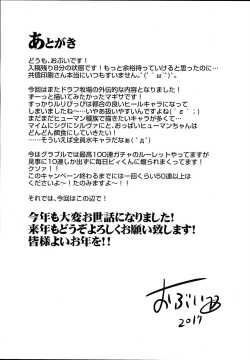 あとがき
どうも、おぶいです！
入稿残り8分の状態です！もっと余裕持っていけると思ったのに…
共信印刷さん本当にいつもすいません。(´・ω・`)
今回はまたドラフ牧場の外伝的な内容となりました！
ずーっと描いてみたかったマギサです！
すっかりルリぴっぴは都合の良いヒールキャラになって
しまいましたね～…いやあ扱いやすいんですよね(´ε｀；)
まだまだヒューマン種族で描きたいキャラが多くて…
マイムにシグにシルヴァにと、おっぱいヒューマンちゃんは
どんどん餌食にしていきたい！
…そういえば全員水キャラだなあ(´д｀)
今はグラブルでは最高100連ガチャのルーレットやってますが
見事に10連しか出ずに毎日ビィくんに煽られまくっています！
クソァ！！
このキャンペーン終わるまでには一回くらい50連以上は
くださいよ～！たのみますよ～！！
それでは、今回はこの辺で！
今年も大変お世話になりました！
来年もどうぞよろしくお願い致します！
皆様よいお年を！！
おぶい
2017